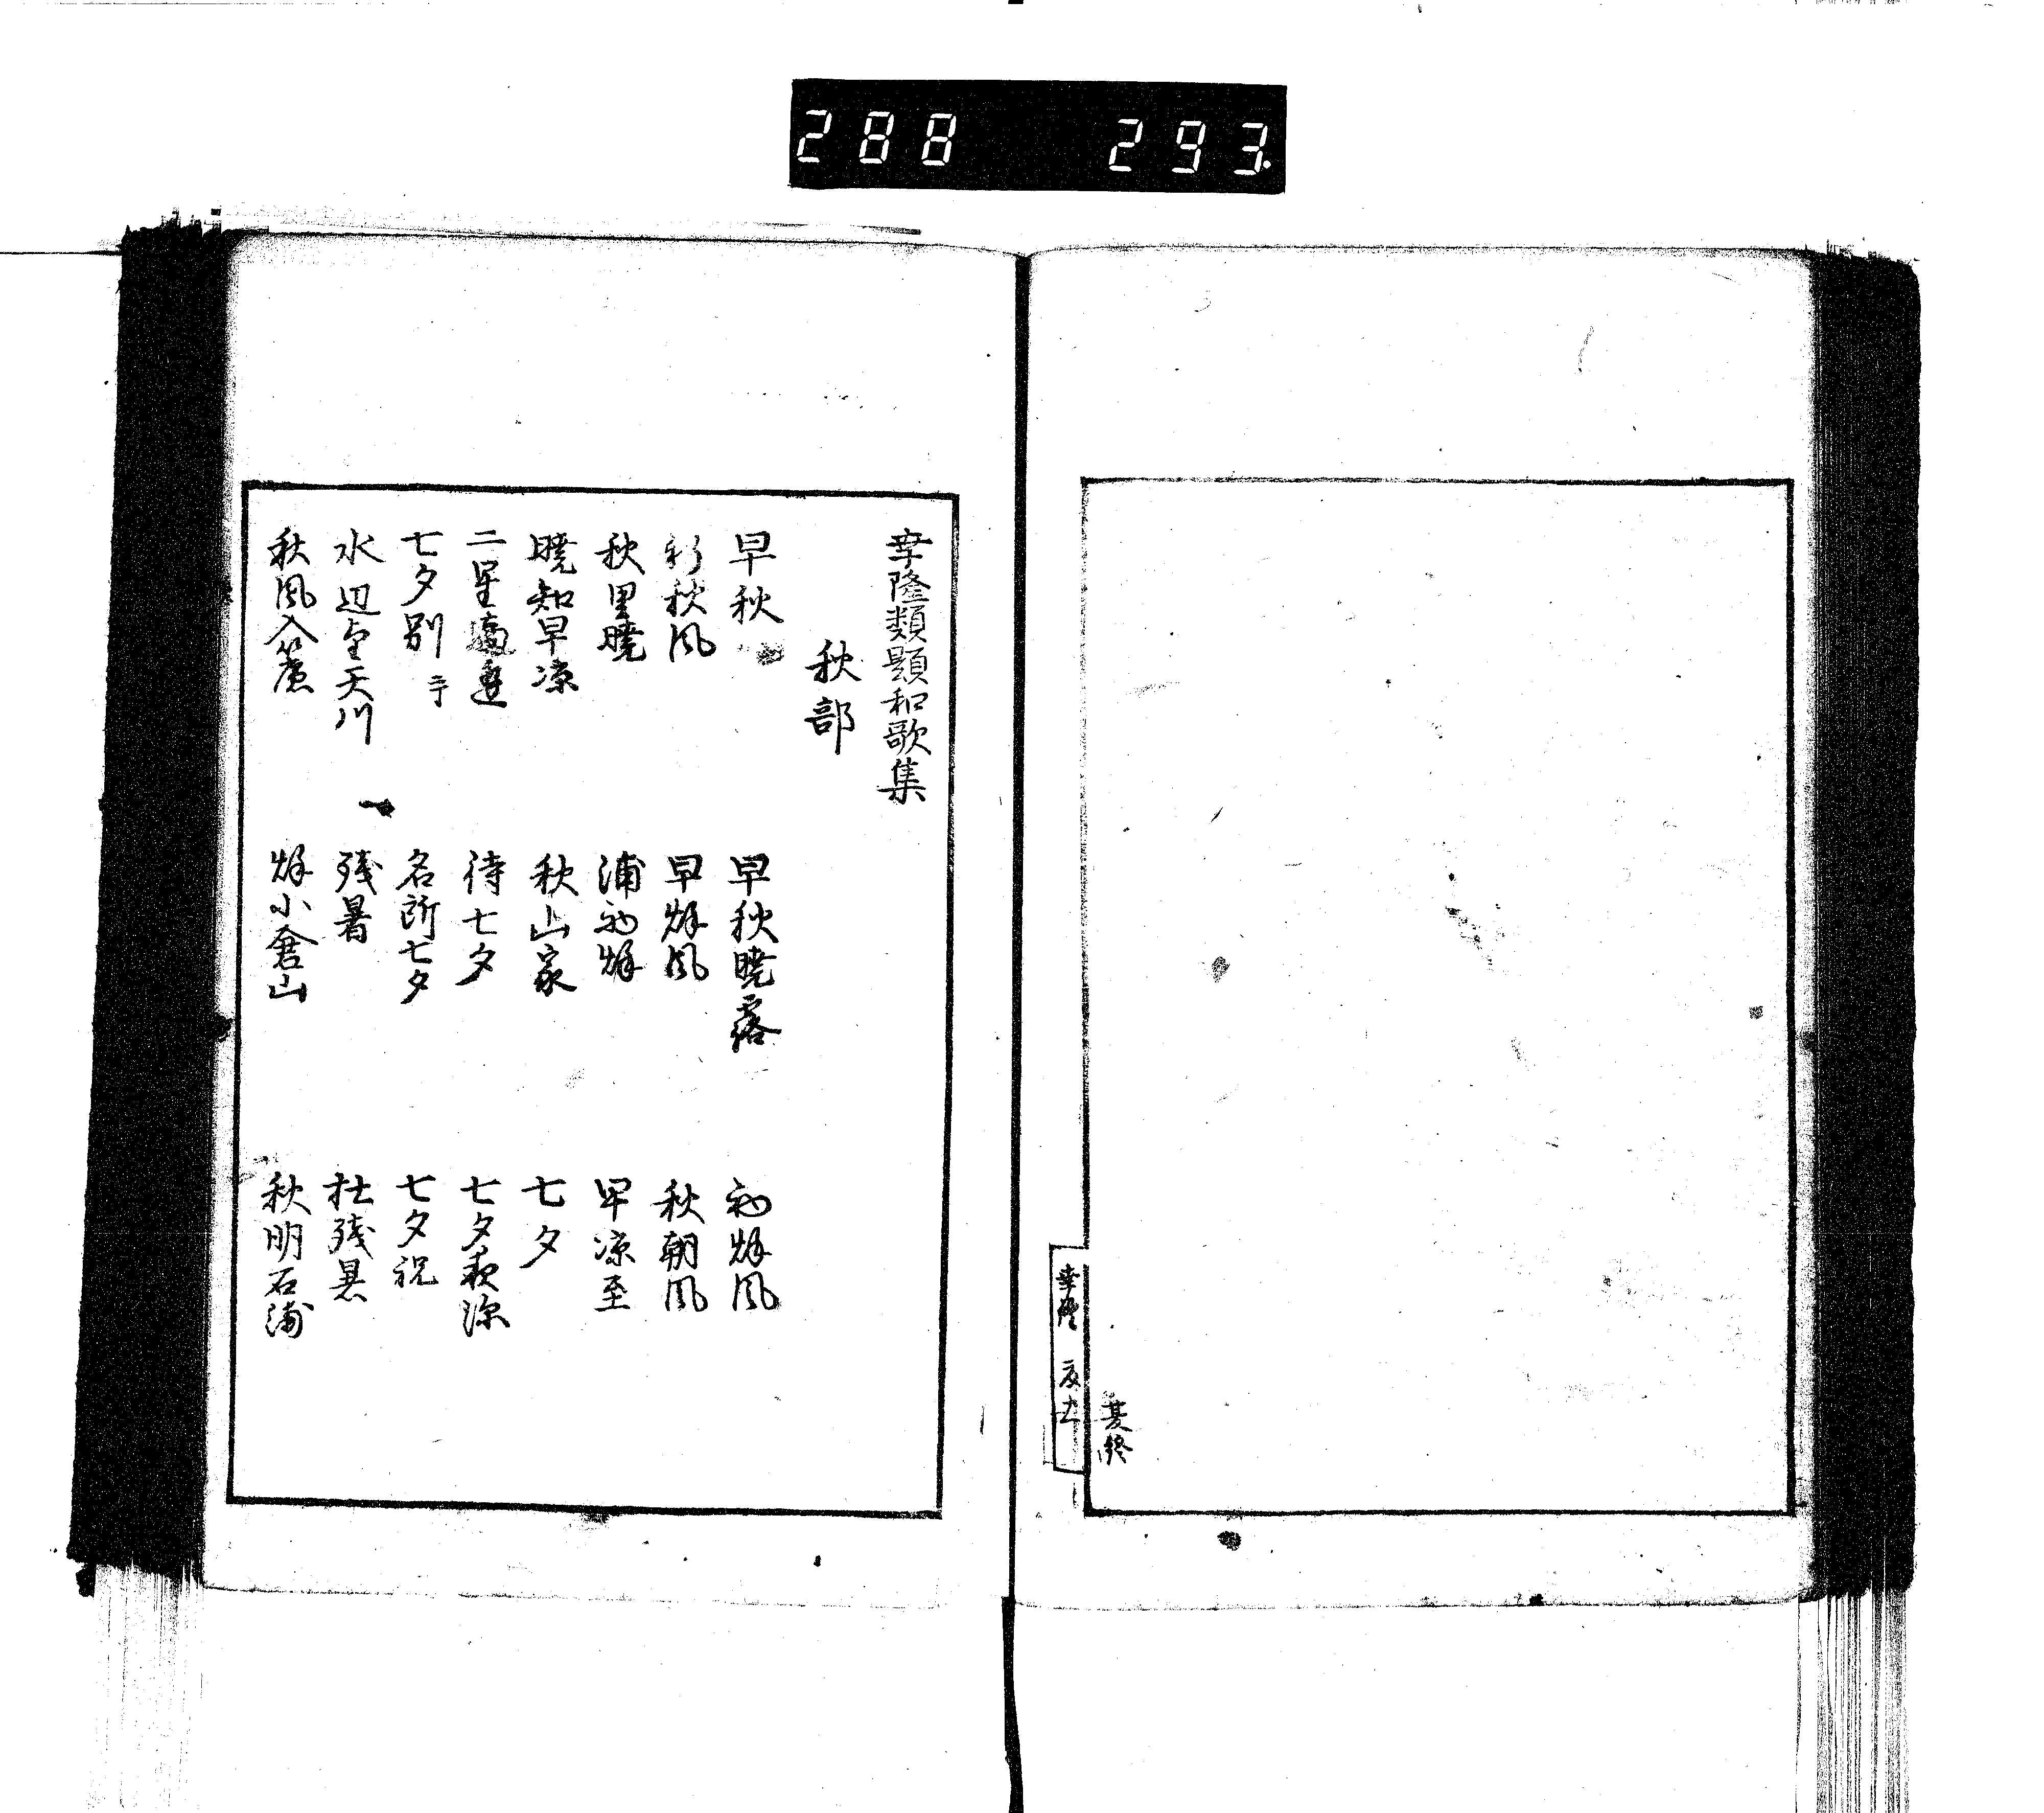 288 293.
幸隆 夏 十
夏終
幸隆類題和歌集
秋部
早秋 早秋暁露 初烁風
新秋風 早烁風 秋朝風
秋里暁 浦初烁 早凉至
暁知早凉 秋山家 七夕
二星適逢 待七夕 七夕夜深
七夕別 名所七夕 七夕祝
水辺望天川 残暑 杜残暑
秋風入簾 烁小倉山 秋明石浦